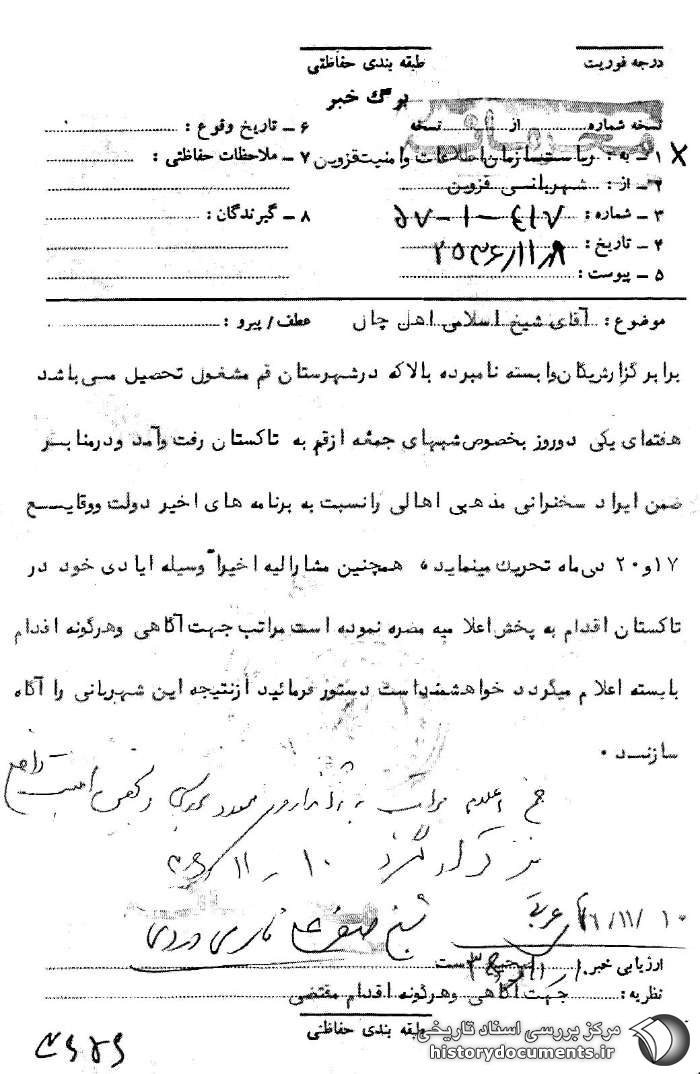 درجه فوریت
طبقه بندی حفاظتی
برگ خبر
نسخه شماره ... از ... نسخه
۱ ـ به : ریاست سازمان اطلاعات و امنیت قزوین
۲ ـ از : شهربانی قزوین
۳ ـ شماره : ۴۱۷ - ۱ - ۵۷
۴ ـ تاریخ : ۲۵۳۶/۱۱/۸
۵ ـ پیوست :
۶ ـ تاریخ وقوع :
۷ ـ ملاحظات حفاظتی :
۸ ـ گیرندگان :
موضوع : آقای شیخ اسلامی اهل چال
عطف / پیرو :
برابر گزارش یگان وابسته نامبرده بالا که در شهرستان قم مشغول تحصیل می باشد
هفته‌ای یکی دو روز بخصوص شبهای جمعه از قم به تاکستان رفت و آمد و در منابر
ضمن ایراد سخنرانی مذهبی اهالی را نسبت به برنامه های اخیر دولت و وقایع
۱۷ و ۲۰ دی ماه تحریک مینماید ، همچنین مشارالیه اخیراً وسیله ایادی خود در
تاکستان اقدام به پخش اعلامیه مضره نموده است مراتب جهت آگاهی و هرگونه اقدام
بایسته اعلام میگردد خواهشمند است دستور فرمائید از نتیجه این شهربانی را آگاه
سازند .
اعلام مراتب به ژاندارمری
۱۰ /۱۱/ ۳۶
۱۰ /۱۱/ ۳۶
شیخ
ارزیابی خبر : صحیح است
نظریه : جهت آگاهی و هرگونه اقدام مقتضی
طبقه بندی حفاظتی
مرکز بررسی اسناد تاریخی
historydocuments.ir